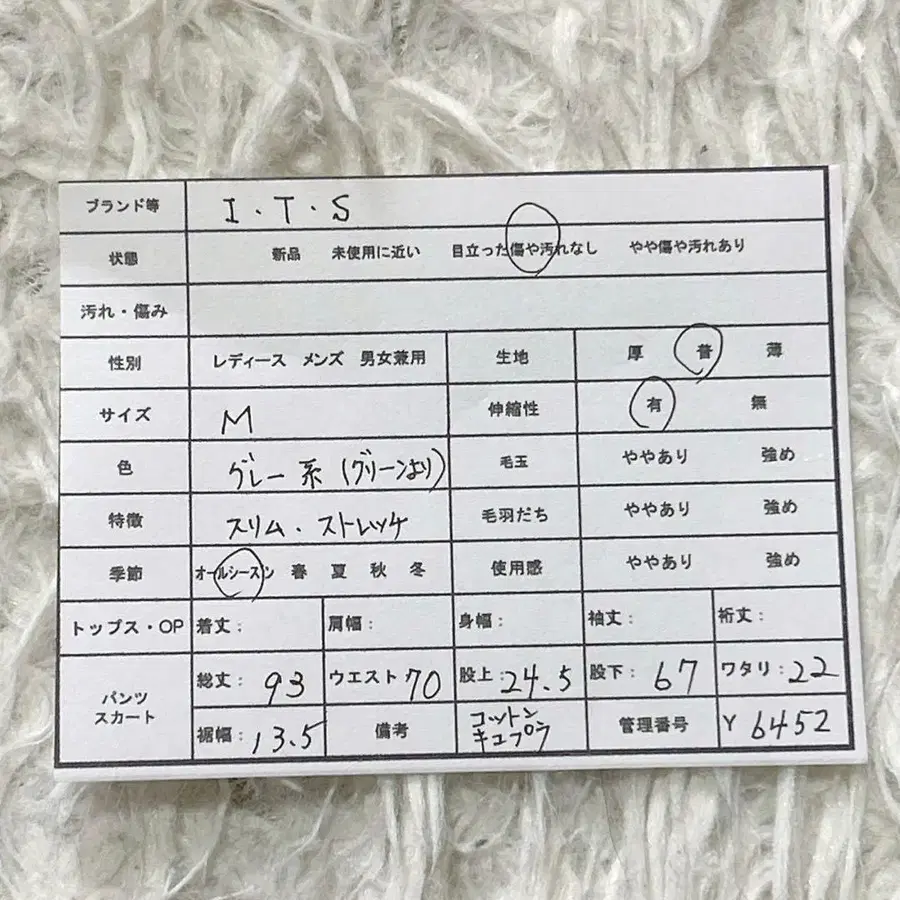 ブランド等 I.T.S
状態 新品 未使用に近い 目立った傷や汚れなし やや傷や汚れあり
汚れ・傷み
性別 レディース メンズ 男女兼用 生地 厚 普 薄
サイズ M 伸縮性 有 無
色 グレー系(グリーンより) 毛玉 ややあり 強め
特徴 スリム.ストレッチ 毛羽だち ややあり 強め
季節 オールシーズン 春 夏 秋 冬 使用感 ややあり 強め
トップス・OP 着丈: 肩幅: 身幅: 袖丈: 裄丈:
パンツ スカート 総丈: 93 ウエスト 70 股上: 24.5 股下: 67 ワタリ: 22
裾幅: 13.5 備考 コットン キュプラ 管理番号 Y 6452